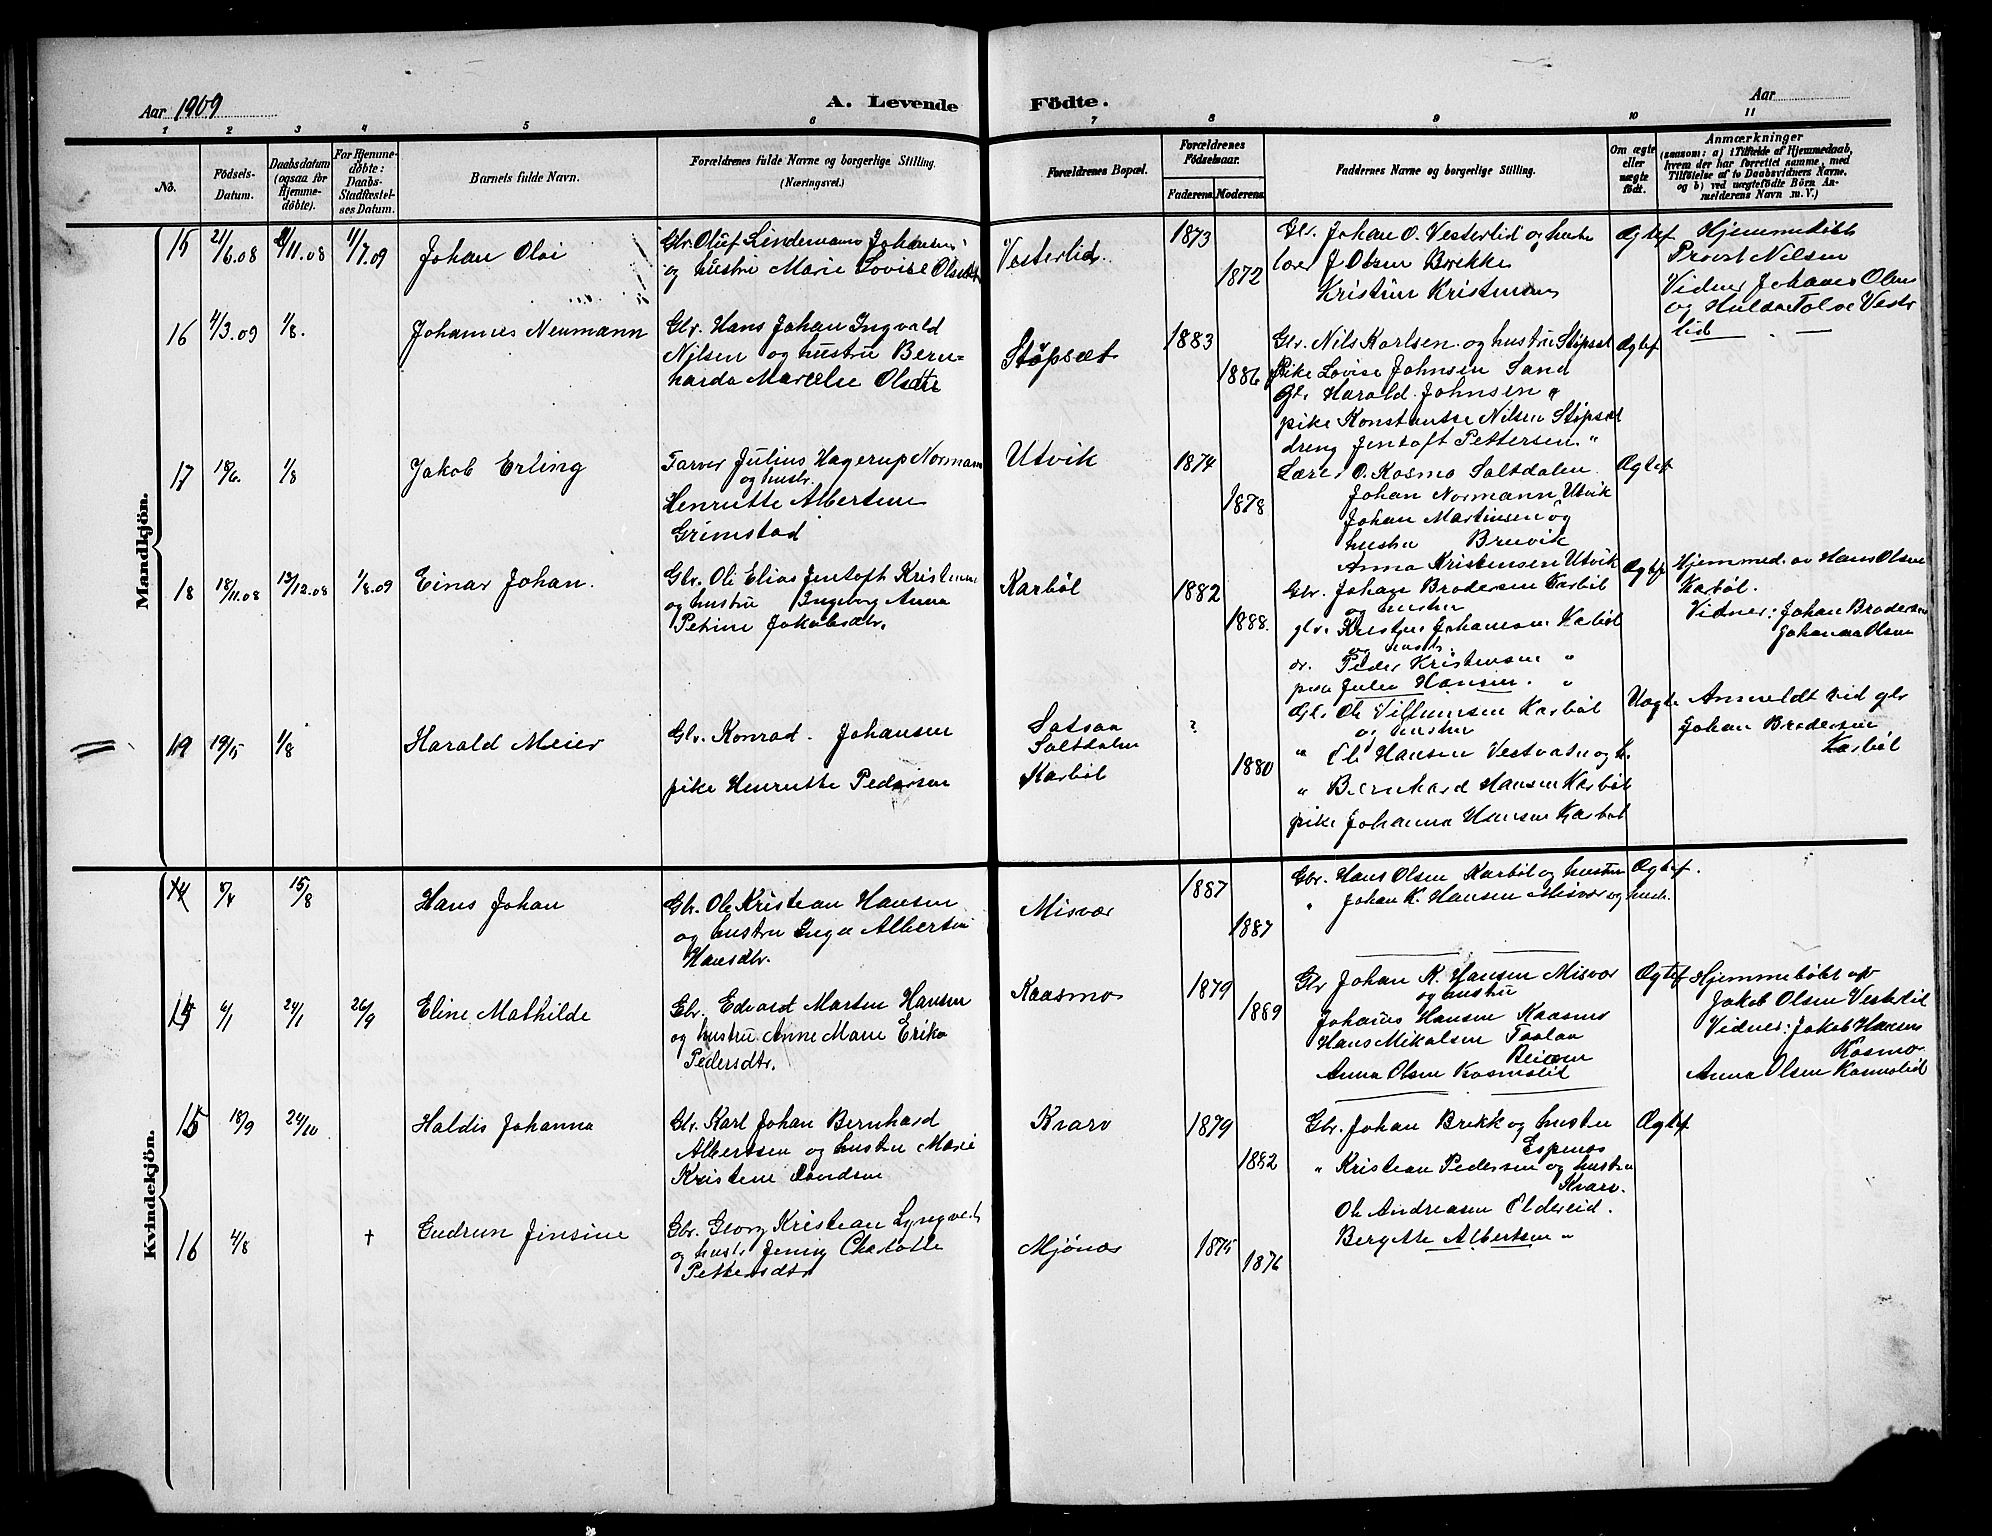 Aar 1909
A. Levende Födte.
Aar
1 2 3 4 5 6 7 8 9 10 11
No.
Födsels-Datum.
Daabsdatum (ogsaa for Hjemme-döbte).
For Hjemme-döbte: Daabs-Stadfæstel-ses Datum.
Barnets fulde Navn.
Forældrenes fulde Navne og borgerlige Stilling. (Næringsvei.)
Forældrenes Bopæl.
Forældrenes Födselsaar.
Faderens. Moderens.
Faddernes Navne og borgerlige Stilling.
Om ægte eller uægte födt.
Anmærkninger
(saasom: a) i Tilfælde af Hjemmedaab, hvem der har forrettet samme, med Tilföielse af to Daabsvidners Navne, og b) ved uægtefödte Börn An-melderens Navn m. V.)
Mandkjön.
15 21/6.08 /11.08 1/7.09 Johan Olai
Gbr. Oluf Lindemann Johansen
og hustru Marie Lovise Olsdtr
Vesterlid.
1873
1872
Gbr. Johan O. Vesterlid og hustr
lærer J Olsen Brekke
Kristine Kristensen
Ægtef
Hjemmedöbt
Provst Nilsen
Vidner Johan Olsen
og Hulda Tolve Vester
lid
16 4/3.09 1/8. Johannes Neumann
Gbr. Hans Johan Ingvald
Nilsen og hustru Bern-
harda Marcelie Olsdtr
Støpsæt
1883
1886
Gbr. Nils Karlsen og hustru Støpsæt
Pike Lovise Johnsen Sand
Gbr Harald Johnsen "
pike Konstantse Nilsen Støpsæt
dreng Jentoft Pettersen "
Ægtef
17 18/6. 1/8 Jakob Erling
Farver Julius Hagerup Normann
og hustr.
Henriette Albertine
Grimstad
Utvik
1874
1878
Lærer O. Kosmo Saltdalen
Johan Normann Utvik
Johan Martinsen og
hustru Breivik
Anna Kristensen Utvik
Ægtef
18 18/11.08 13/12.08 1/8.09 Einar Johan.
Gbr. Ole Elias Jentoft Kristensen
og hustru Ingeborg Anna
Petrine Jakobsdtr.
Karbøl
1882
1888.
Gbr. Johan Brodersen Karbøl
og hustru
gbr. Kristen Johansen Karbøl
og hustr.
dr. Peder Kristensen "
pike Julie Hansen. "
Ægtef
Hjemmed. av Hans Olsen
Karbøl.
Vidner: Johan Brodersen
Johanna Olsen
19 19/5 1/8 Harald Meier
Gbr. Konrad. Johansen
pike Henriette Pedersen
Saltdalen
Karbøl
?
1880
Gbr Ole Villumsen Karbøl
og hustru
" Ole Hansen Vestvatn og h.
" Bernhard Hansen Karbøl
pike Johanna Hansen Karbøl
Uægte
Anmeldt ved gbr
Johan Brodersen
Karbøl
Kvindekjön.
14 /4 15/8 Hans Johan
Gbr. Ole Kristian Hansen
og hustru Inga Albertine
Hansdtr.
Misvær
1887
1887
Gbr. Hans Olsen Karbøl og hustru
" Johan K. Hansen Misvær og hustr.
Ægtef.
15 6/1 24/1 26/9 Eline Mathilde
Gbr. Edvard Martin Hansen
og hustru Anne Marie Erika
Pedersdtr.
Kaasmo
1879
1889
Gbr Johan K. Hansen Misvær
og hustru
Johans Hansen Kaasmo
Hans Mikalsen Taalaa
Beiarn
Anna Olsen Kosmolid
Ægtef
Hjemmedöbt av
Jakob Olsen Vesterlid
Vidner: Jakob Hansen
Kosmo
Anna Olsen Kosmolid
15 18/9 24/10 Haldis Johanna
Gbr. Karl Johan Bernhard
Albertsen og hustru Marie
Kristine Davidsen
Kvarv
1879
1882
Gbr. Johan Brekk og hustru
Espenes
" Kristian Pedersen og hustru
Kvarv.
Ole Andreasen Oldereid.
Bergitte Albertsen "
Ægtef
16 4/8 † Gudrun Jensine
Gbr. Georg Kristian Lyngved
og hustr Jenny Charlotte
Pettersdtr
Mjønes
1875
1876